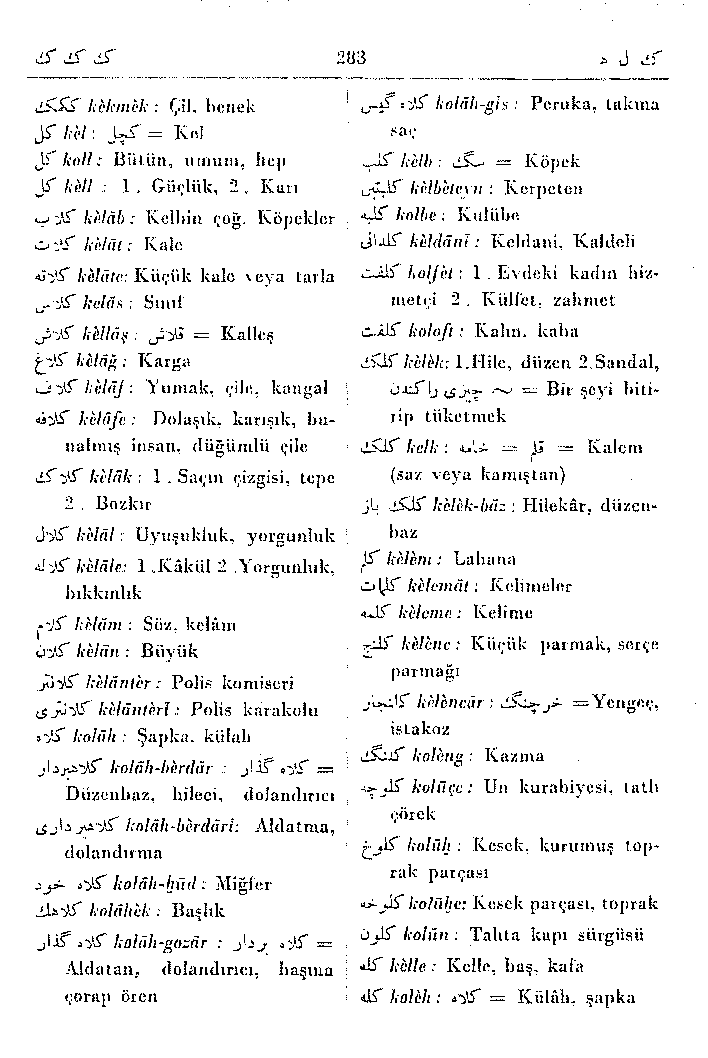 ك ك ك ك 283 ك ل ه
ككمك kèkmèk : Çil, benek
كل kèl : كچل = Kel
كل koll : Bütün, umum, hep
كل kèll : 1 . Güçlük, 2 . Karı
كلاب kèlāb : Kelbin çoğ. Köpekler
كلات kèlāt : Kale
كلاته kèlāte: Küçük kale veya tarla
كلاس kelās : Sınıf
كلاش kèllāş : قلاش = Kalleş
كلاغ kèlāğ : Karga
كلاف kèlāf : Yumak, çile, kangal
كلافه kèlāfe : Dolaşık, karışık, bu-
nalmış insan, düğümlü çile
كلاك kèlāk : 1 . Saçın çizgisi, tepe
2 . Bozkır
كلال kèlāl : Uyuşukluk, yorgunluk
كلاله kèlāle: 1 .Kâkül 2 .Yorgunluk,
bıkkınlık
كلام kèlām : Söz, kelâm
كلان kèlān : Büyük
كلانتر kèlāntèr : Polis komiseri
كلانترى kèlāntèrî : Polis karakolu
كلاه kolāh : Şapka, külah
كلاهبردار kolāh-bèrdār : كلاه گذار =
Düzenbaz, hileci, dolandırıcı
كلاهبردارى kolāh-bèrdārî: Aldatma,
dolandırma
كلاه خود kolāh-hūd : Miğfer
كلاهك kolāhèk : Başlık
كلاه گذار kolāh-gozār : كلاه بردار =
Aldatan, dolandırıcı, başına
çorap ören
كلاه گيس kolāh-gis : Peruka, takma
saç
كلب kèlb : سگ = Köpek
كلبتين kèlbèteyn : Kerpeten
كلبه kolbe : Kulübe
كلدانى kèldānî : Keldani, Kaldeli
كلفت kolfèt : 1 . Evdeki kadın hiz-
metçi 2 . Külfet, zahmet
كلفت koloft : Kalın, kaba
كلك kèlèk: 1.Hile, düzen 2.Sandal,
~ چيزى را كندن = Bir şeyi biti-
rip tüketmek
كلك kelk : خامه = قلم = Kalem
(saz veya kamıştan)
كلك باز kèlèk-bāz : Hilekâr, düzen-
baz
كلم kèlèm : Lahana
كلمات kèlemāt : Kelimeler
كلمه kèleme : Kelime
كلنج kèlènc : Küçük parmak, serçe
parmağı
كلنجار kèlèncār : خرچنگ =Yengeç,
istakoz
كلنگ kolèng : Kazma
كلوچه kolūçe : Un kurabiyesi, tatlı
çörek
كلوخ kolūh : Kesek, kurumuş top-
rak parçası
كلوخه kolūhe: Kesek parçası, toprak
كلون kolūn : Tahta kapı sürgüsü
كله kèlle : Kelle, baş, kafa
كله kolèh : كلاه = Külâh, şapka